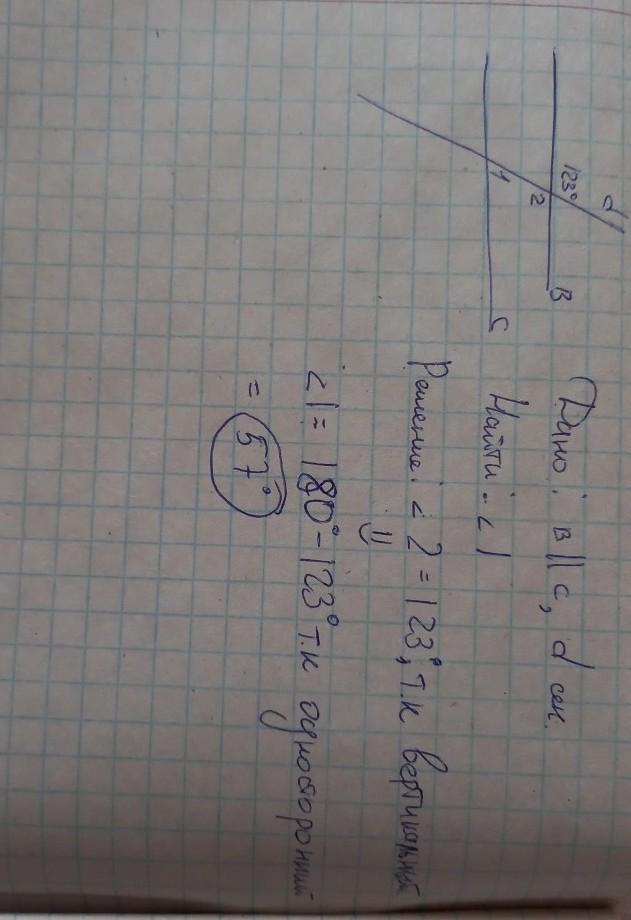 d
123°
2
B
1
C
Дано: в || с, d сек.
Найти: < 1
Решение: < 2 = 123°, т.к вертикальный
=>
< 1 = 180° - 123° т.к односторонний
= 57°